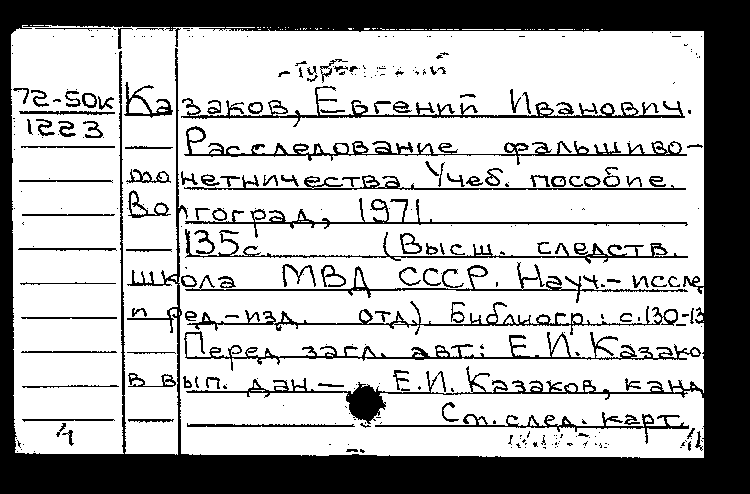 72-50к Казаков, Евгений Иванович.
1223
Расследование фальшиво-
монетничества. Учеб. пособие.
Волгоград, 1971.
135с. (Высш. следств.
школа МВД СССР. Науч.-иссле
и ред.-изд. отд.). Библиогр.: с.130-13
Перед загл. авт.: Е.И. Казако
в вып. дан.— Е.И. Казаков, канд
См.след. карт.
4